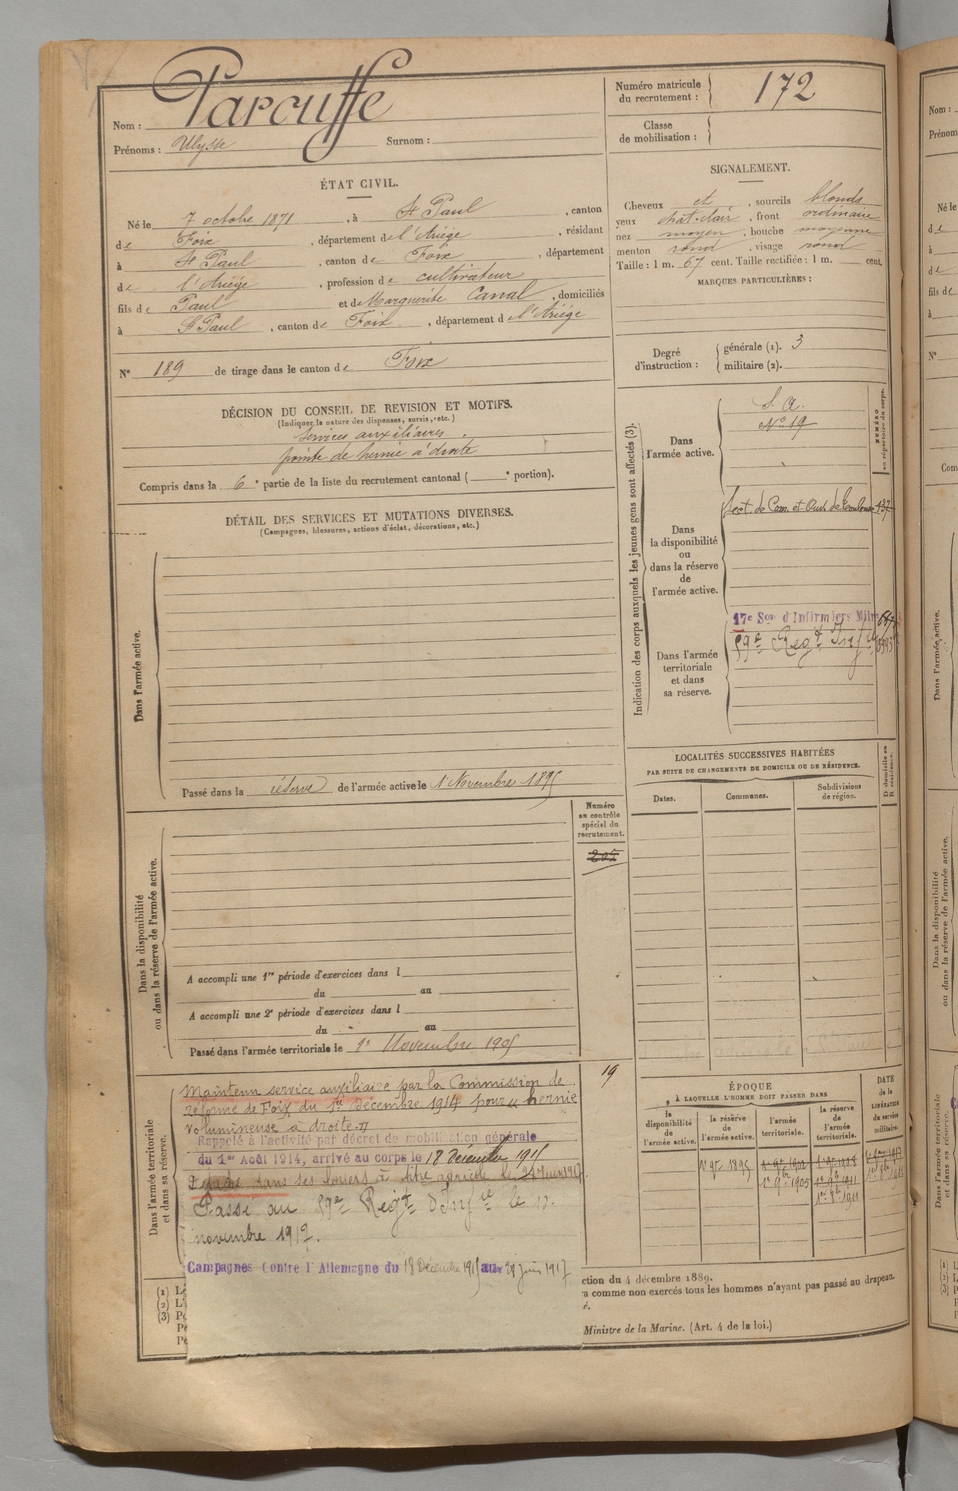 Nom : Parouffe
Prénoms : Ulysse Surnom :
Numéro matricule du recrutement : 172
Classe de mobilisation :
ÉTAT CIVIL.
Né le 7 octobre 1871, à St Paul, canton
de Foix, département de l'Ariège, résidant
à St Paul, canton de Foix, département
de l'Ariège, profession de cultivateur
fils de Paul et de Marguerite Canal, domiciliés
à St Paul, canton de Foix, département de l'Ariège
N° 189 de tirage dans le canton de Foix
SIGNALEMENT.
Cheveux et, sourcils blonds
yeux chat-clair, front ordinaire
nez moyen, bouche moyenne
menton rond, visage rond
Taille : 1 m. 67 cent. Taille rectifiée : 1 m. cent.
MARQUES PARTICULIÈRES :
Degré d'instruction : générale (1). 3
militaire (2).
DÉCISION DU CONSEIL DE REVISION ET MOTIFS.
(Indiquer la nature des dispenses, sursis, etc.)
Services auxiliaires.
pointe de hernie à droite
Compris dans la 6e partie de la liste du recrutement cantonal ( e portion).
DÉTAIL DES SERVICES ET MUTATIONS DIVERSES.
(Campagnes, blessures, actions d'éclat, décorations, etc.)
Dans l'armée active.
Passé dans la réserve de l'armée active le 1 Novembre 1895
Indication des corps auxquels les jeunes gens sont affectés (3).
NUMÉRO au répertoire du corps.
Dans l'armée active.
S. A.
N° 19
Dans la disponibilité ou dans la réserve de l'armée active.
Sect. de Com. et Ouv. de 137
Dans l'armée territoriale et dans sa réserve.
17e Son d'Infirmiers Milres
59e Regt Infie
LOCALITÉS SUCCESSIVES HABITÉES
PAR SUITE DE CHANGEMENTS DE DOMICILE OU DE RÉSIDENCE.
Dates. Communes. Subdivisions de région.
D domicile ou R résidence.
Numéro au contrôle spécial du recrutement.
Dans la disponibilité ou dans la réserve de l'armée active.
A accompli une 1re période d'exercices dans l
du au
A accompli une 2e période d'exercices dans l
du au
Passé dans l'armée territoriale le 1er Novembre 1905
Dans l'armée territoriale et dans sa réserve.
Maintenu service auxiliaire par la Commission de
réforme de Foix du 1er décembre 1914 pour "hernie
volumineuse à droite"
Rappelé à l'activité par décret de mobilisation générale
du 1er Août 1914, arrivé au corps le 18 Décembre 1915
Détaché dans ses foyers à titre agricole le 29 Juin 1917
Passé au 59e Regt d'Infie le
novembre 1917.
Campagnes Contre l'Allemagne du 18 Décembre 1915 au 29 Juin 1917
19
ÉPOQUE
À LAQUELLE L'HOMME DOIT PASSER DANS
la disponibilité de l'armée active.
la réserve de l'armée active.
l'armée territoriale.
la réserve de l'armée territoriale.
DATE de la LIBÉRATION du service militaire.
1er 9bre 1895
1er 9bre 1905
1er 9bre 1911
ction du 4 décembre 1889.
a comme non exercés tous les hommes n'ayant pas passé au drapeau.
é.
Ministre de la Marine. (Art. 4 de la loi.)
(1) Le
(2) L'
(3) Po
Pe
Pe